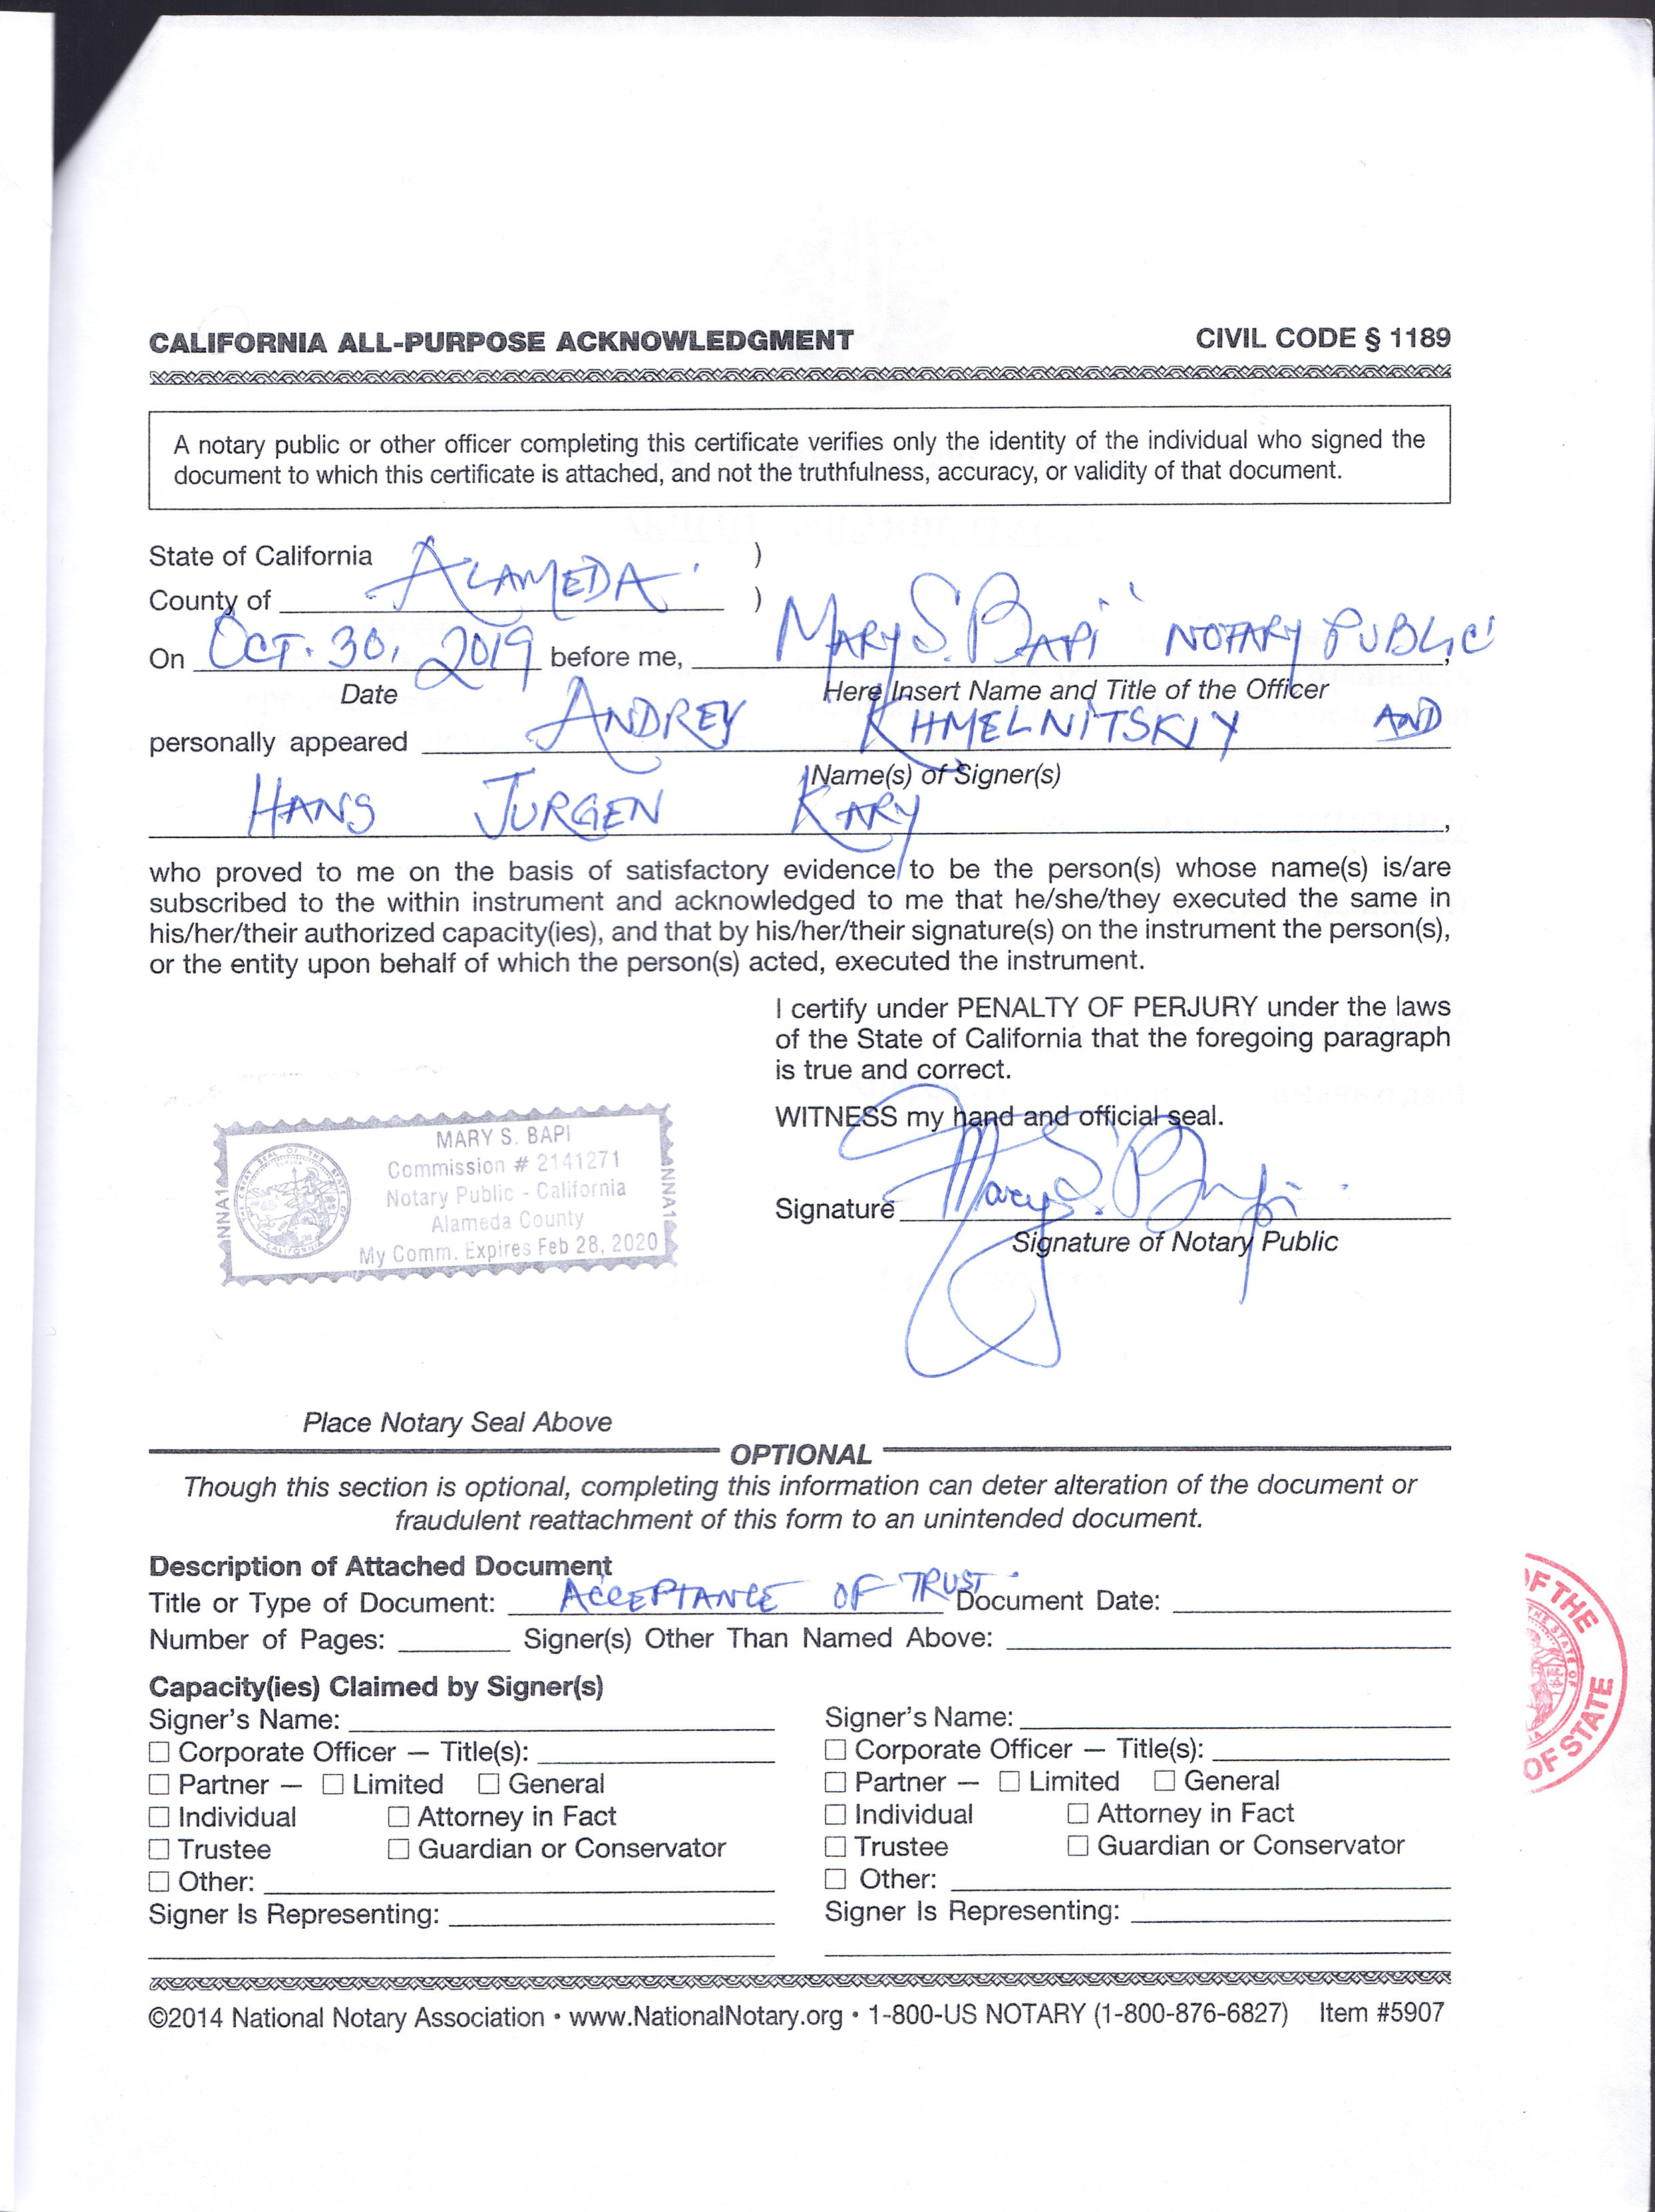 CALIFORNIA ALL-PURPOSE ACKNOWLEDGMENT CIVIL CODE § 1189
A notary public or other officer completing this certificate verifies only the identity of the individual who signed the
document to which this certificate is attached, and not the truthfulness, accuracy, or validity of that document.
State of California )
County of ALAMEDA )
On OCT. 30, 2019 before me, MARY S. BAPI NOTARY PUBLIC,
Date Here Insert Name and Title of the Officer
personally appeared ANDREY KHMELNITSKIY AND
Name(s) of Signer(s)
HANS JURGEN KARY,
who proved to me on the basis of satisfactory evidence to be the person(s) whose name(s) is/are
subscribed to the within instrument and acknowledged to me that he/she/they executed the same in
his/her/their authorized capacity(ies), and that by his/her/their signature(s) on the instrument the person(s),
or the entity upon behalf of which the person(s) acted, executed the instrument.
I certify under PENALTY OF PERJURY under the laws
of the State of California that the foregoing paragraph
is true and correct.
WITNESS my hand and official seal.
MARY S. BAPI
Commission # 2141271
Notary Public - California
Alameda County
My Comm. Expires Feb 28, 2020
NNA1
NNA1
GREAT SEAL OF THE STATE OF CALIFORNIA
Signature Mary S. Bapi
Signature of Notary Public
Place Notary Seal Above
OPTIONAL
Though this section is optional, completing this information can deter alteration of the document or
fraudulent reattachment of this form to an unintended document.
Description of Attached Document
Title or Type of Document: ACCEPTANCE OF TRUST Document Date:
Number of Pages: Signer(s) Other Than Named Above:
Capacity(ies) Claimed by Signer(s)
Signer's Name: Signer's Name:
Corporate Officer — Title(s): Corporate Officer — Title(s):
Partner — Limited General Partner — Limited General
Individual Attorney in Fact Individual Attorney in Fact
Trustee Guardian or Conservator Trustee Guardian or Conservator
Other: Other:
Signer Is Representing: Signer Is Representing:
OF THE
OF STATE
©2014 National Notary Association • www.NationalNotary.org • 1-800-US NOTARY (1-800-876-6827) Item #5907